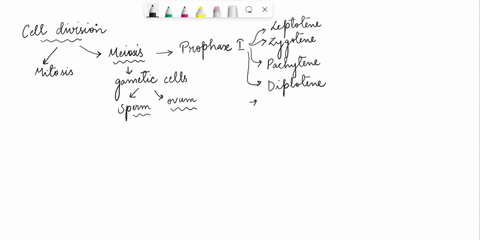 Cell division
Mitosis
Meiosis
gametic cells
Sperm
ovum
Prophase I
Leptotene
Zygotene
Pachytene
Diplotene